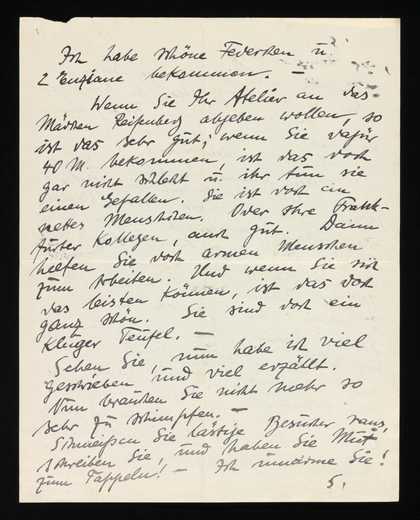 Ich habe schöne Federchen u.
2 Enziane bekommen. —
Wenn Sie Ihr Atelier an das
Mädchen Reifenberg abgeben wollen, so
ist das sehr gut; wenn Sie dafür
40 M. bekommen, ist das doch
gar nicht schlecht u. ihr tun sie
einen Gefallen. Sie ist doch ein
nettes Menschlein. Oder Ihre Frank-
furter Kollegen, auch gut. Dann
helfen Sie doch armen Menschen
zum Arbeiten. Und wenn Sie sich
das leisten können, ist das doch
ganz schön. Sie sind doch ein
kluger Teufel. —
Sehen Sie, nun habe ich viel
geschrieben und viel erzählt.
Nun brauchen Sie nicht mehr so
sehr zu schimpfen. —
Schmeißen Sie lästige Besucher raus,
schreiben Sie, und haben Sie Mut
zum Tappeln! — Ich umarme Sie!
S.